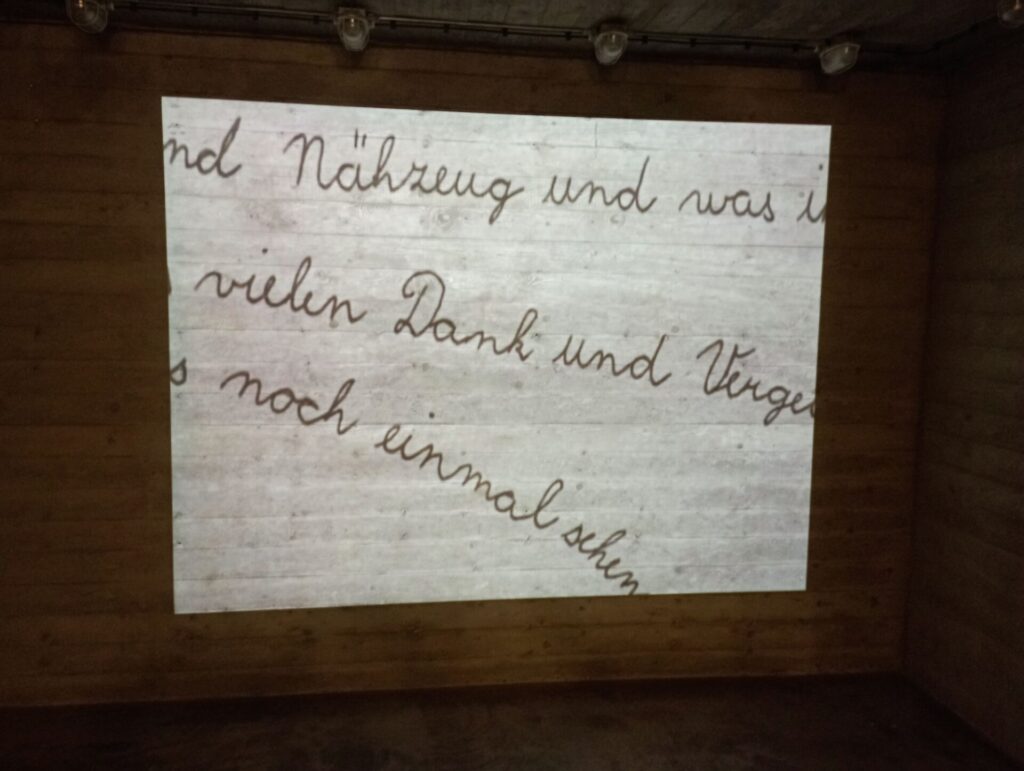 nd Nähzeug und was i
vielen Dank und Verge
s noch einmal sehen